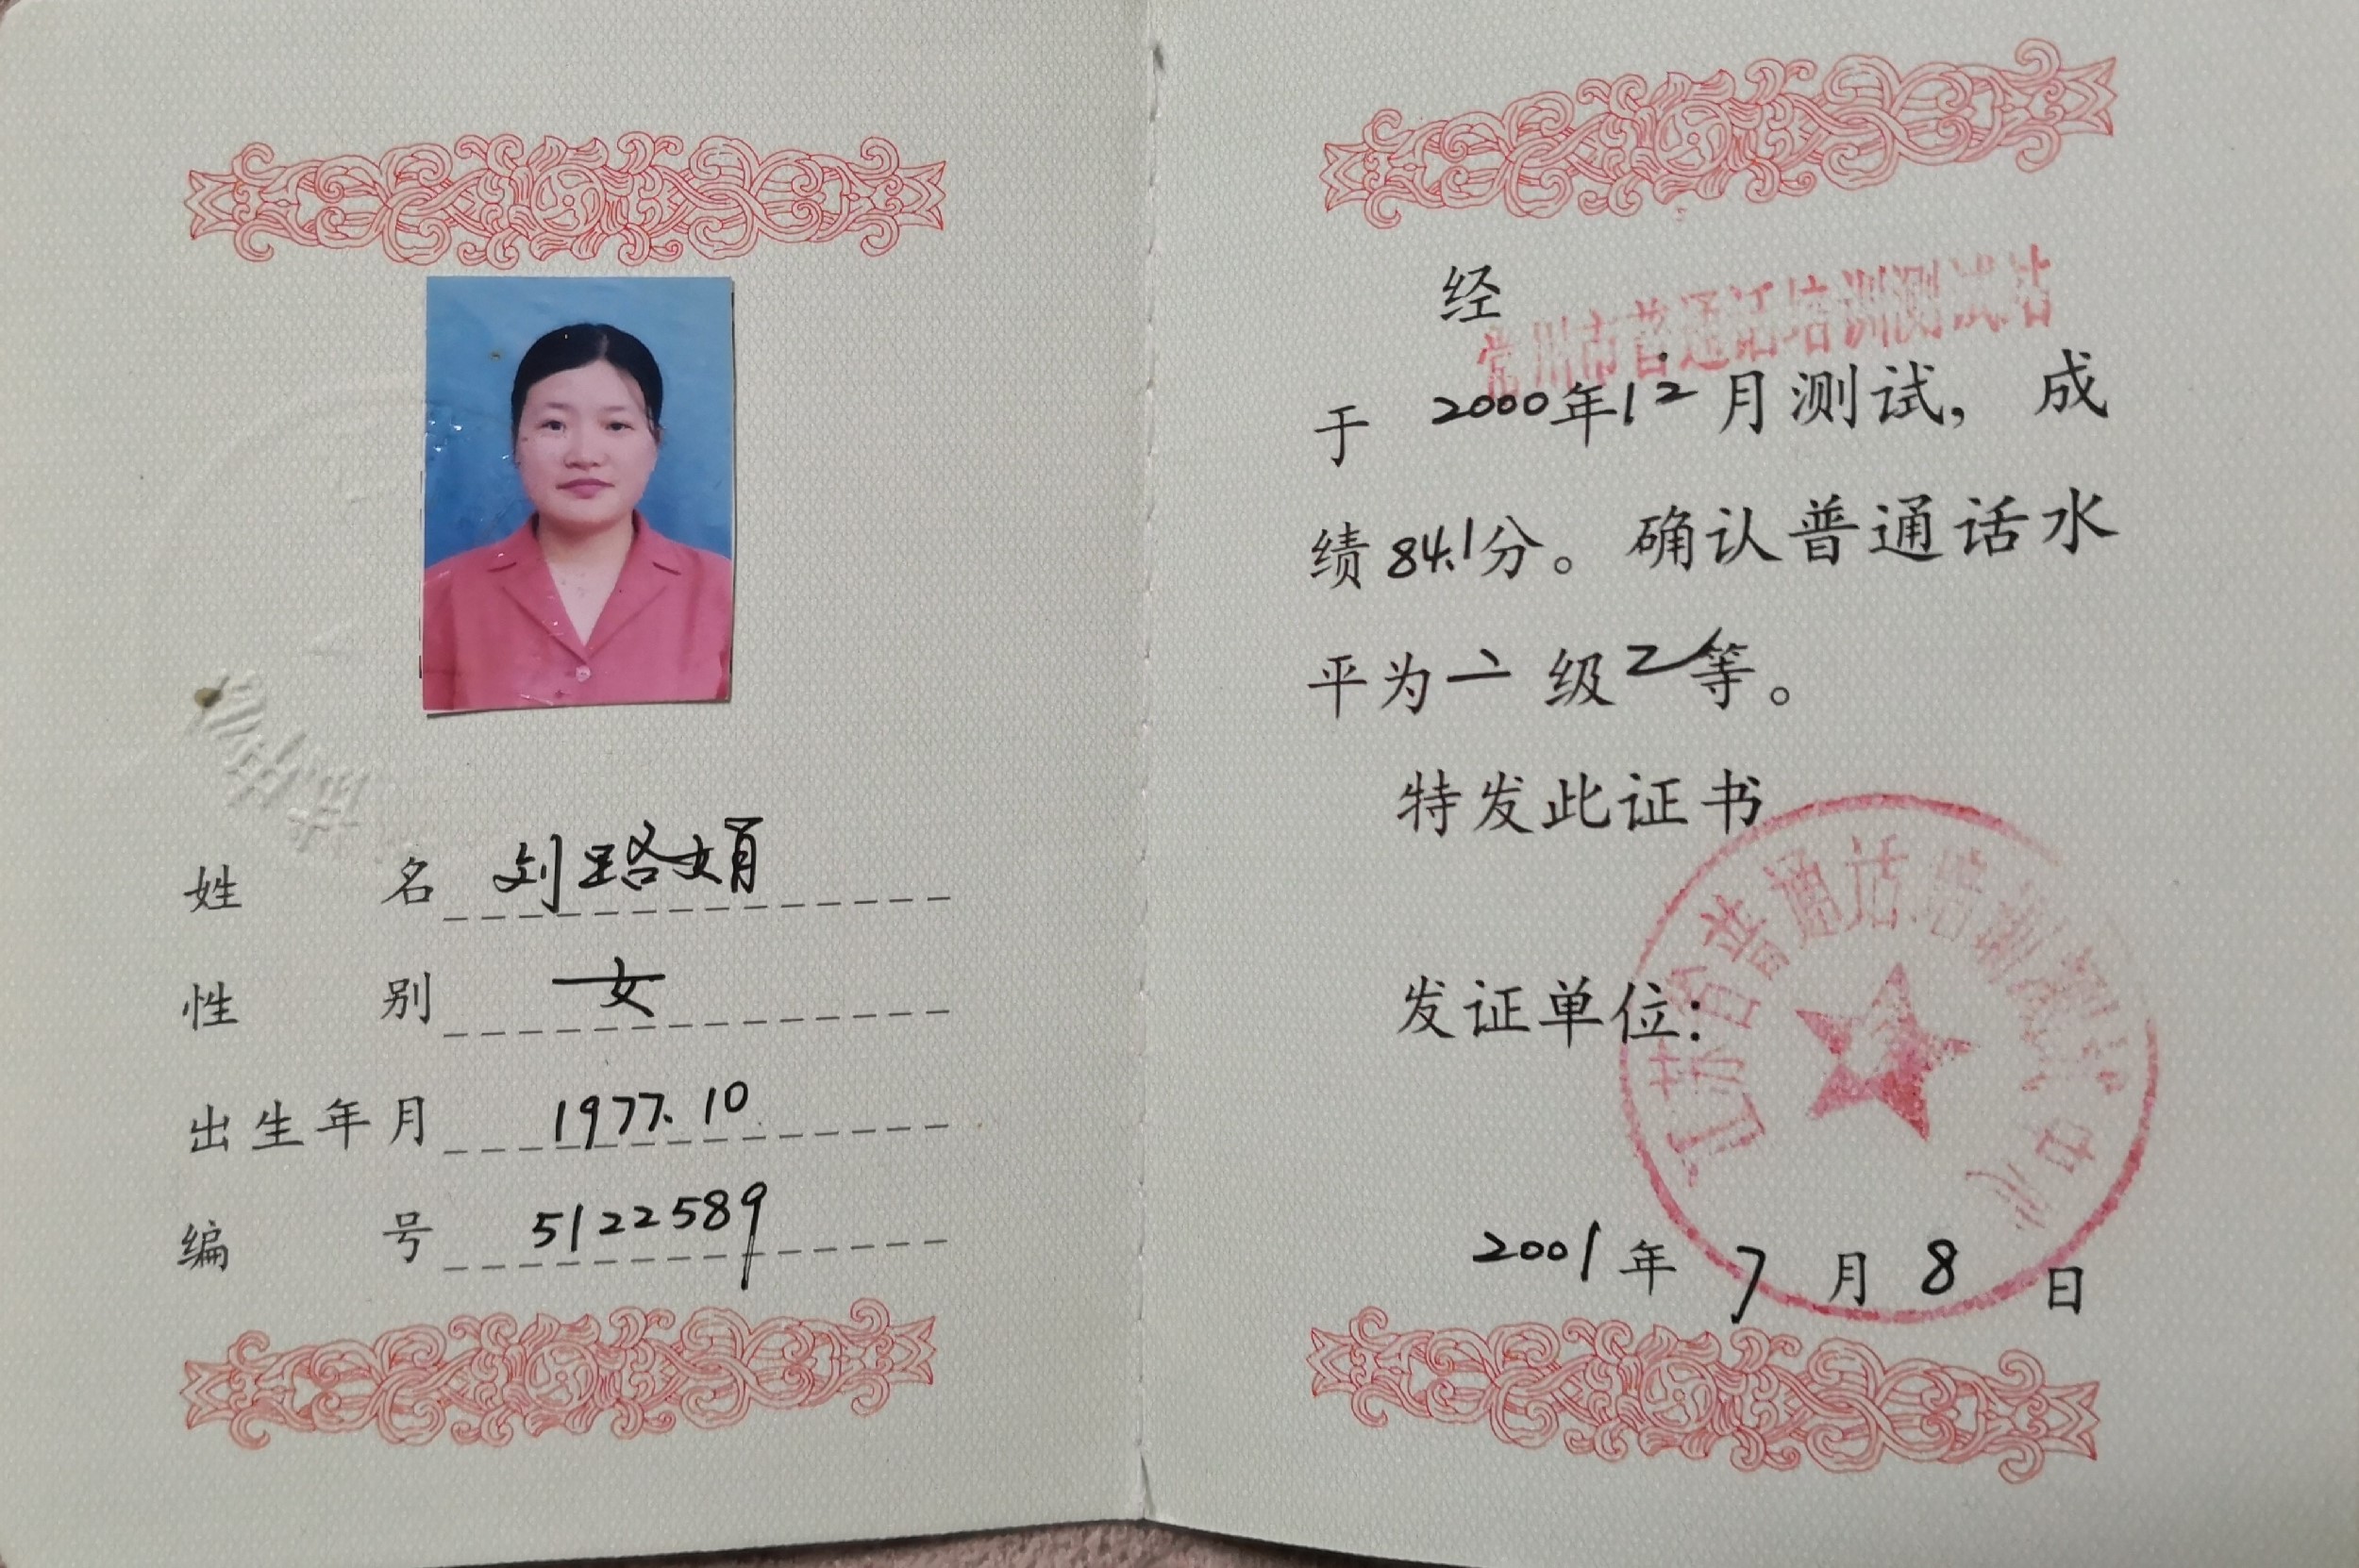 姓名 刘路娟
性别 女
出生年月 1977.10
编号 5122589
经 常州市普通话培训测试站
于 2000年12月测试，成
绩84.1分。确认普通话水
平为二级乙等。
特发此证书
发证单位:
江苏省普通话培训测试中心
2001年7月8日